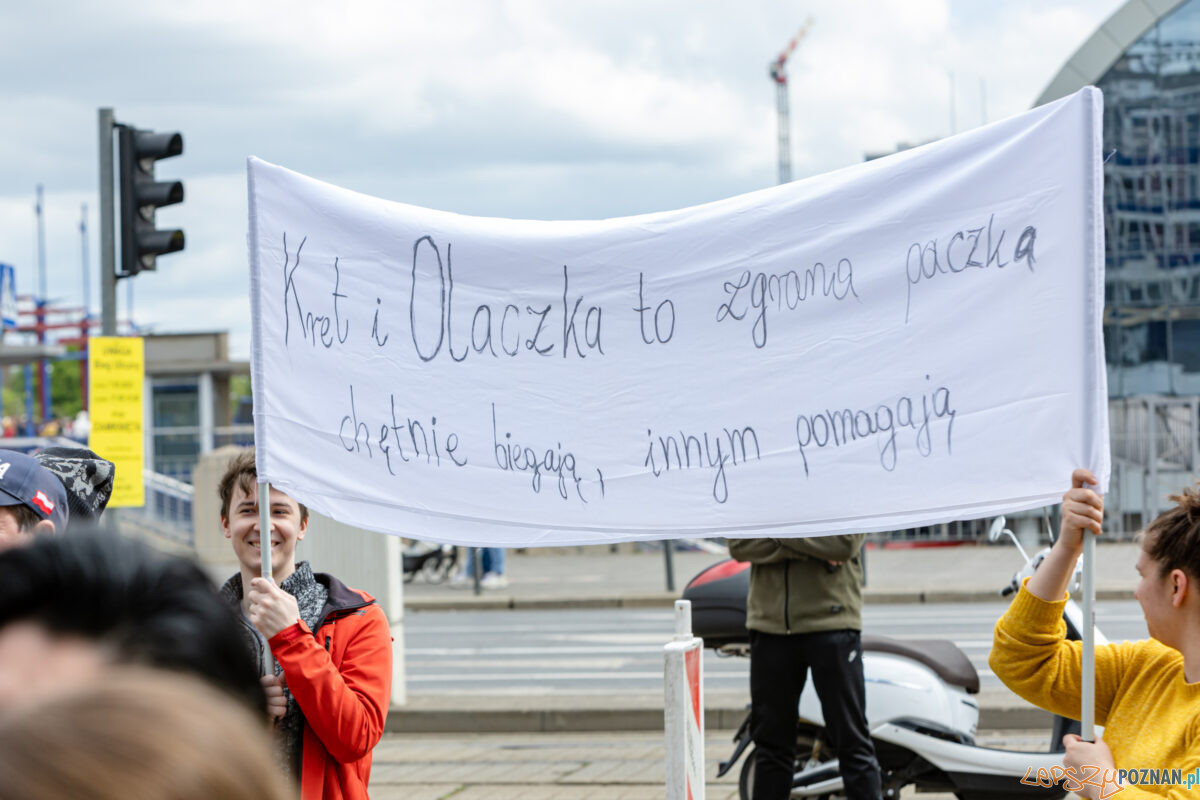 Kret i Olaczka to zgrana paczka
chętnie biegają, innym pomagają
UWAGA
LEPSZYPOZNAN.pl